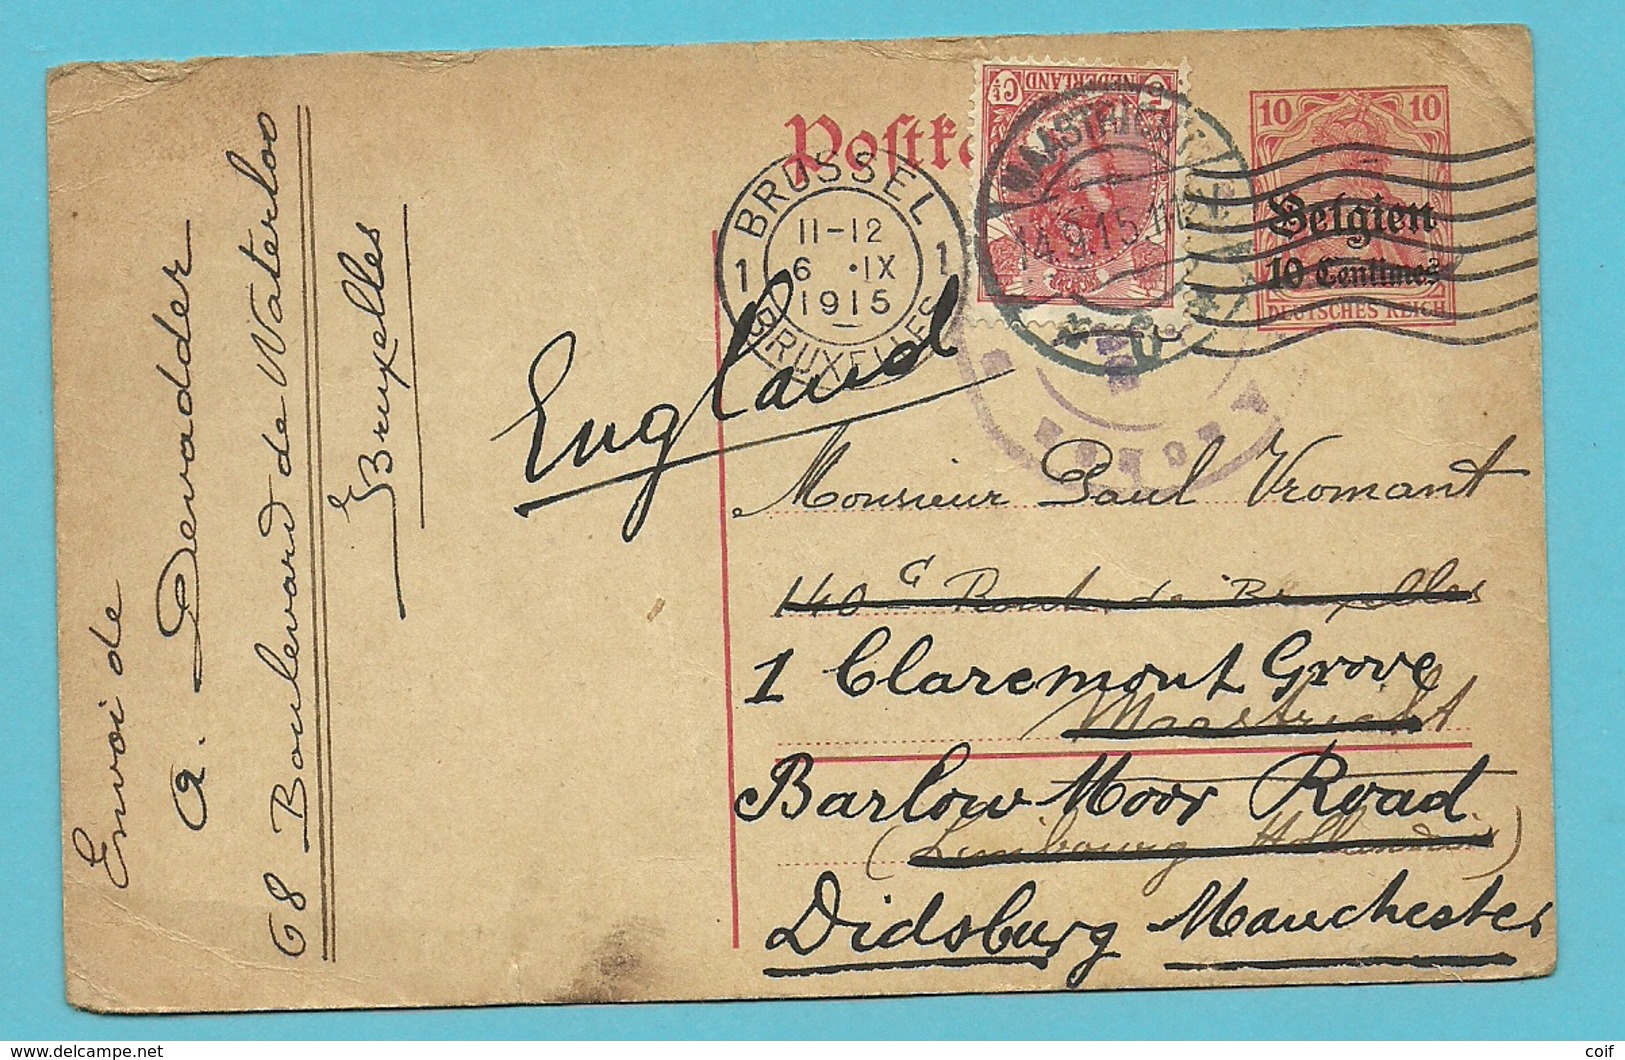 Postk
BRUSSEL
1 11-12 1
6 .IX
1915
BRUXELLES
NEDERLAND
MAASTRICHT
14.9.15.
10 10
Belgien
10 Centimes
DEUTSCHES REICH
England
Monsieur Paul Vromant
140 G Route de Bruxelles
1 Claremont Grove
Maastricht
Barlow Moor Road
(Limbourg Hollandais)
Didsburg Manchester
Envoi de
A. Dewadder
68 Boulevard de Waterloo
Bruxelles
delcampe.net
coif